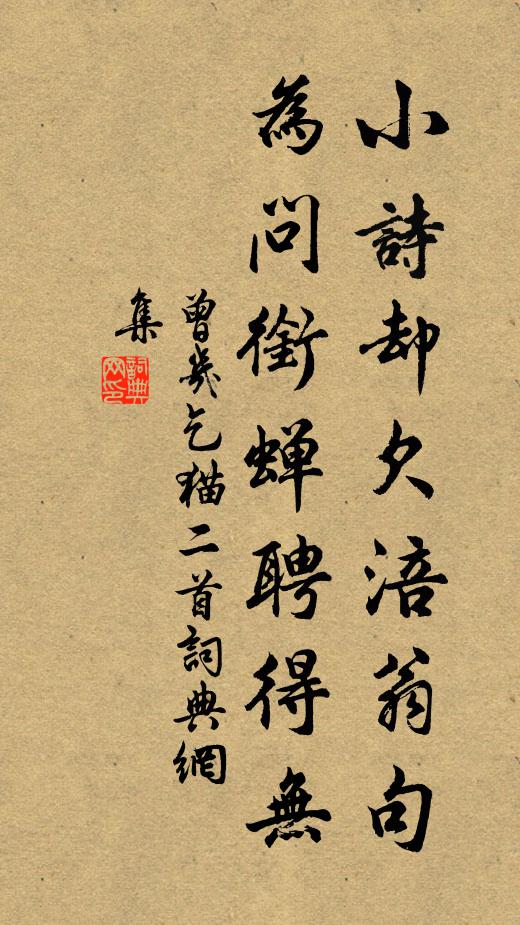 小詩却欠涪翁句
為問銜蟬聘得無
曾幾乞猫二首詞典網
集
詞典
网印